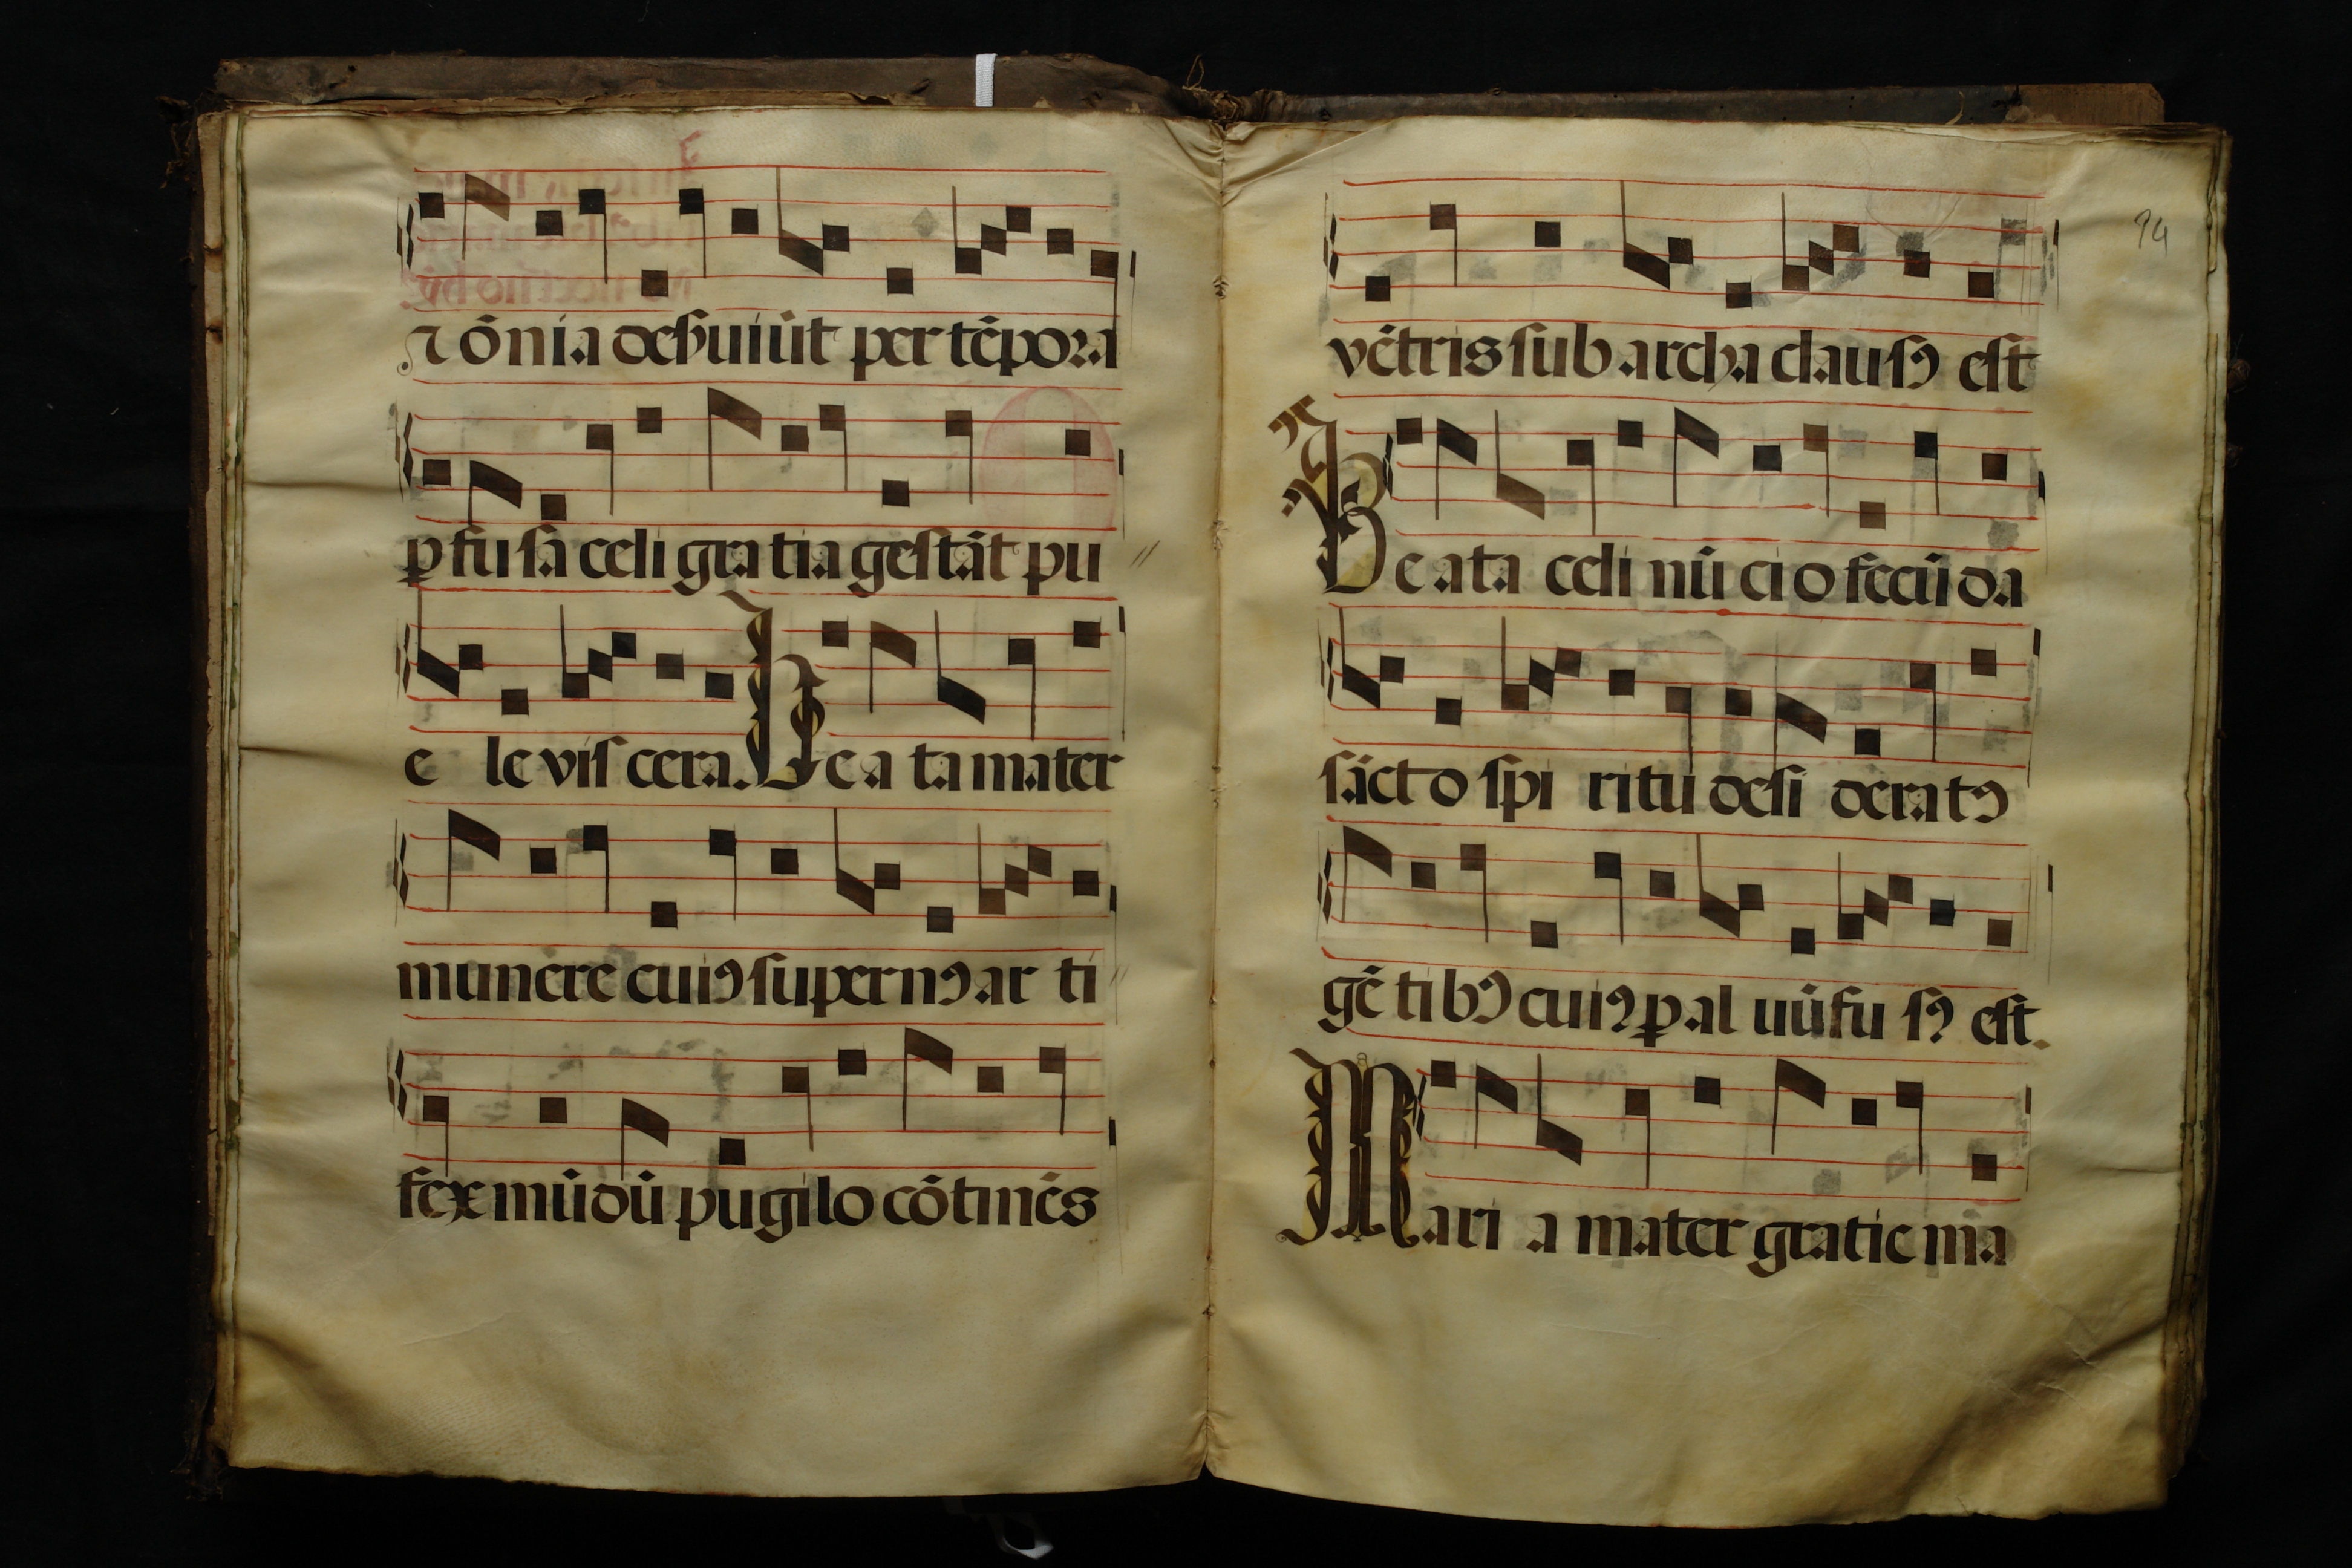 ⁊ õnia deſeruiũt per tẽpora
ꝑfuſa celi gratia geſtãt pu
e le viſ cera. Beata mater
munere cuiꝯ ſupernꝯ ar ti
fex mũdũ pugilo cõtinẽs
94
vẽtris ſub archa clauſꝯ eſt
Beata celi nũcio fecũda
ſãcto ſpi ritu deſi deratꝯ
gẽtibꝯ cuiꝯ ꝑ al uũ fu ſꝯ eſt.
Mari a mater gratie ma